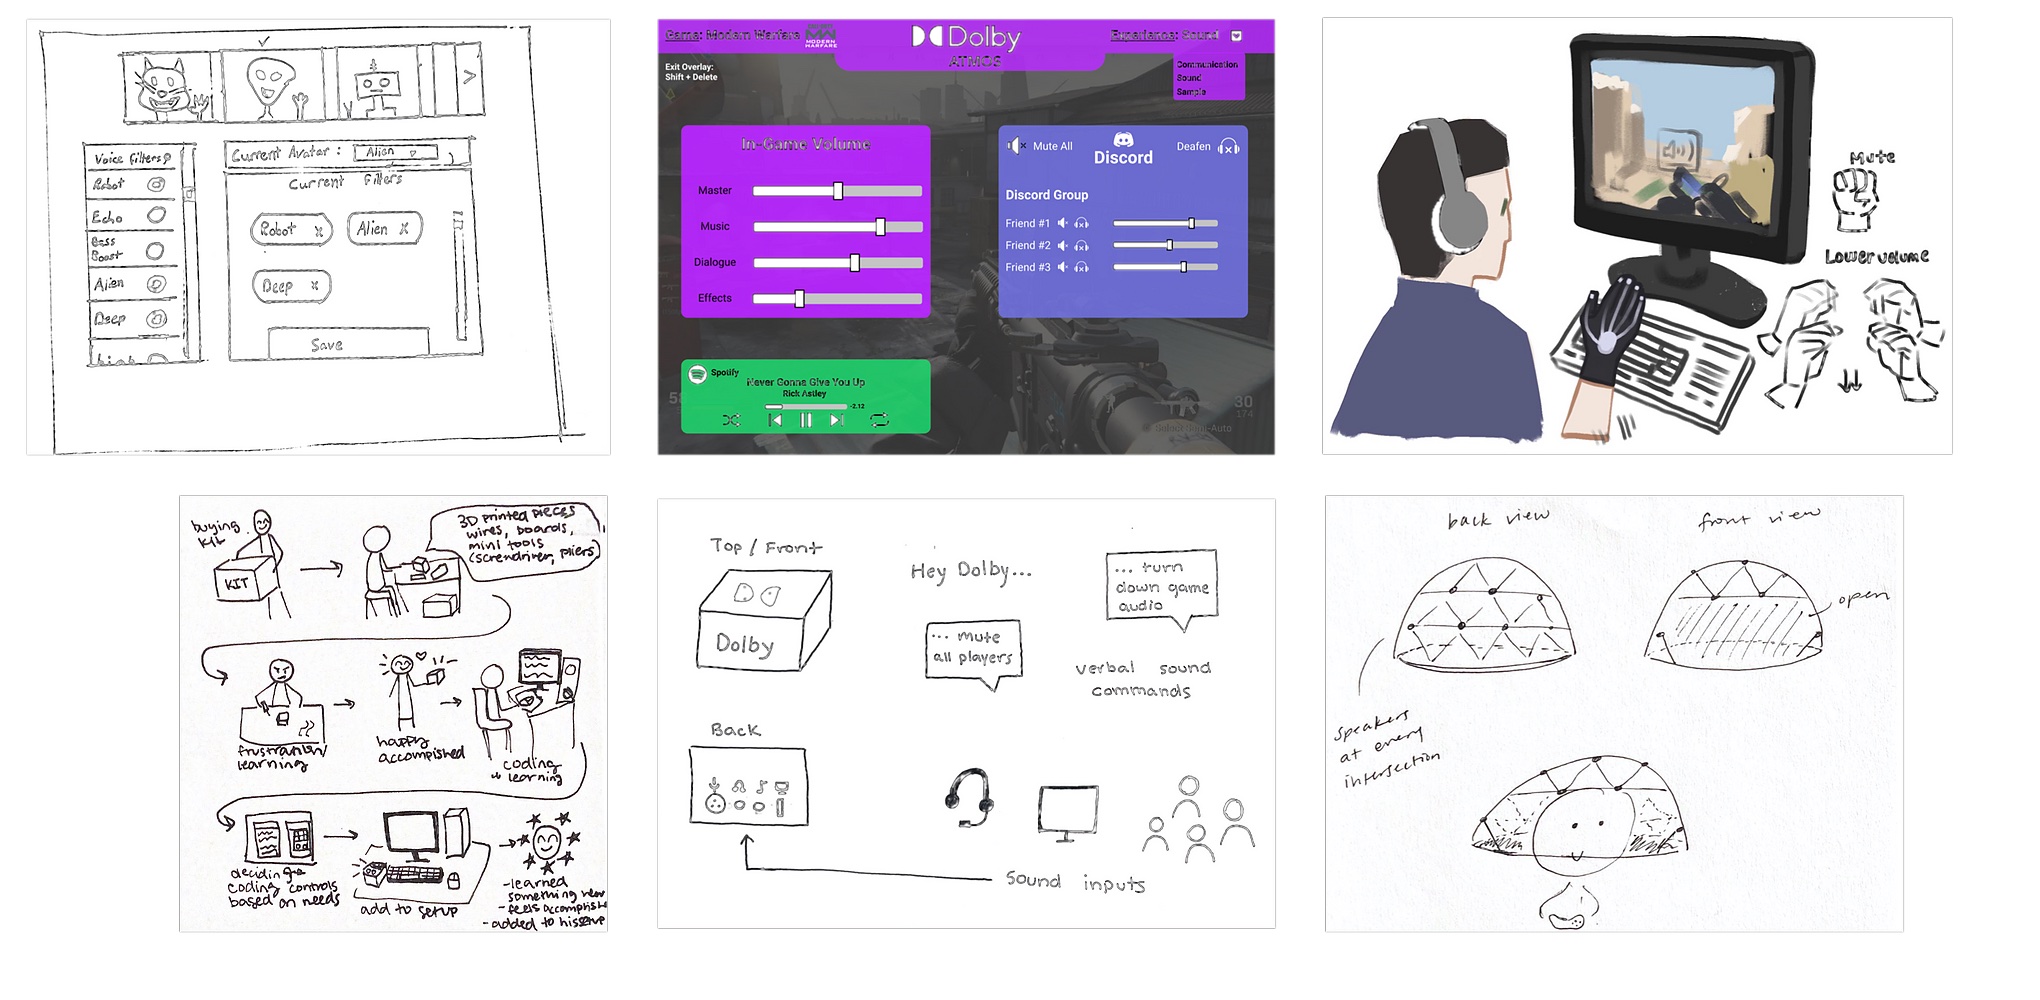 Voice filters
Robot
Echo
Bass
Boost
Alien
Deep
Current Avatar :
Alien
Current Filters
Robot x
Alien x
Deep x
Save
Game: Modern Warfare
MODERN
WARFARE
Dolby
ATMOS
Experience: Sound
Communication
Sound
Sample
Exit Overlay:
Shift + Delete
In-Game Volume
Master
Music
Dialogue
Effects
Mute All
Discord
Deafen
Discord Group
Friend #1
Friend #2
Friend #3
Spotify
Never Gonna Give You Up
Rick Astley
-2.12
30
174
Mute
Lower volume
buying
kit
KIT
3D printed pieces
wires, boards,
mini tools
(screwdriver, pliers)
frustration/
learning
happy
accomplished
coding
learning
deciding
coding controls
based on needs
add to setup
-learned
something new
-feels accomplish
-added to his setup
Top / Front
Dolby
Hey Dolby...
... mute
all players
... turn
down game
audio
verbal sound
commands
Back
Sound inputs
back view
front view
open
speakers
at every
intersection